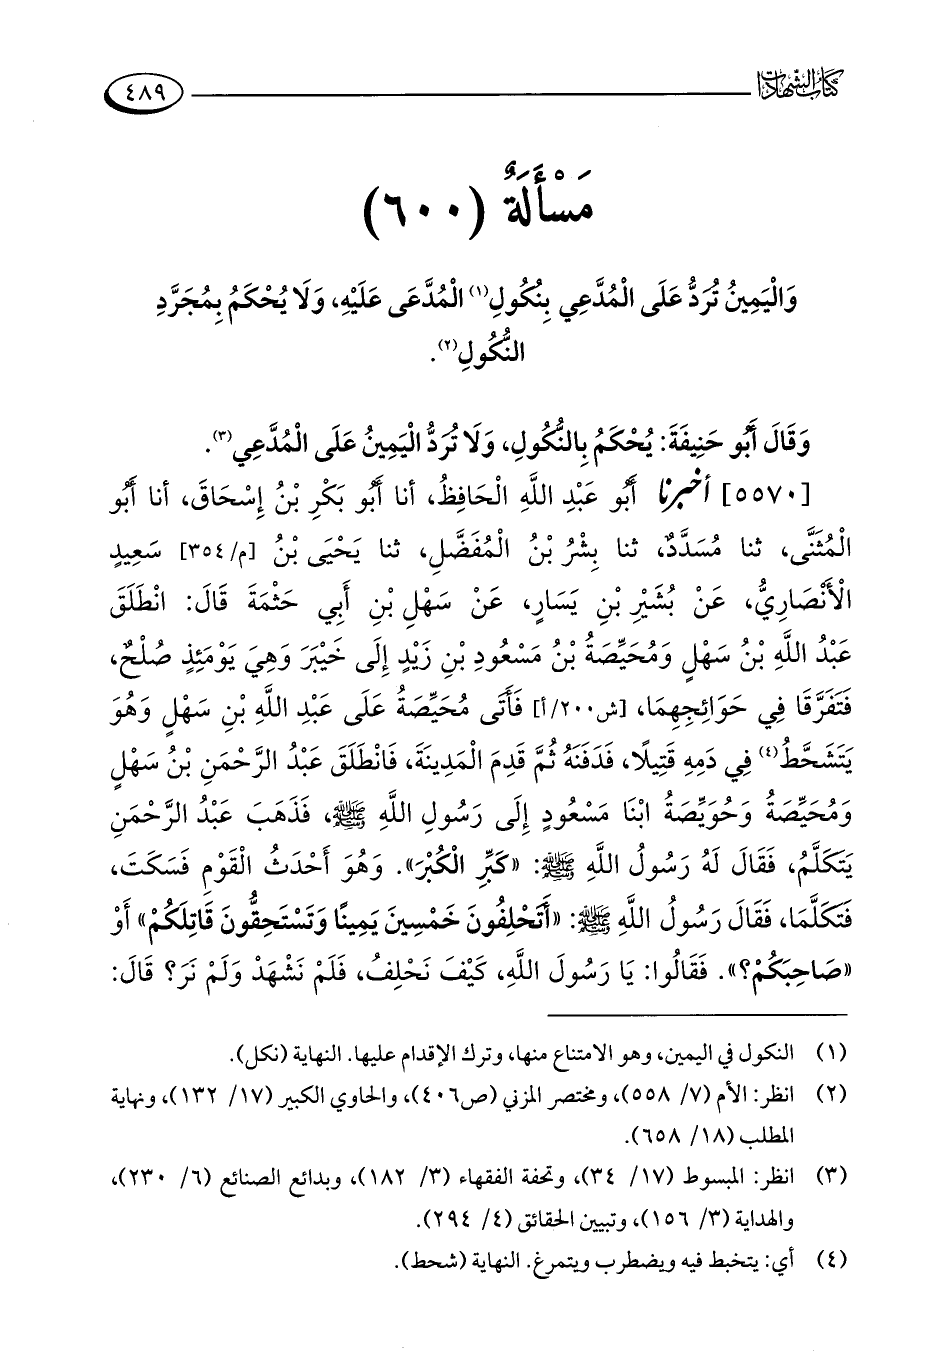 كتاب الشهادات
٤٨٩
مَسْأَلَةٌ (٦٠٠)
وَالْيَمِينُ تُرَدُّ عَلَى الْمُدَّعِي بِنُكُولِ(١) الْمُدَّعَى عَلَيْهِ، وَلَا يُحْكَمُ بِمُجَرَّدِ
النُّكُولِ(٢).
وَقَالَ أَبُو حَنِيفَةَ: يُحْكَمُ بِالنُّكُولِ، وَلَا تُرَدُّ الْيَمِينُ عَلَى الْمُدَّعِي(٣).
[٥٥٧٠] أخبرنا أَبُو عَبْدِ اللَّهِ الْحَافِظُ، أنا أَبُو بَكْرِ بْنُ إِسْحَاقَ، أنا أَبُو
الْمُثَنَّى، ثنا مُسَدَّدٌ، ثنا بِشْرُ بْنُ الْمُفَضَّلِ، ثنا يَحْيَى بْنُ [م/٣٥٤] سَعِيدٍ
الْأَنْصَارِيُّ، عَنْ بُشَيْرِ بْنِ يَسَارٍ، عَنْ سَهْلِ بْنِ أَبِي حَثْمَةَ قَالَ: انْطَلَقَ
عَبْدُ اللَّهِ بْنُ سَهْلٍ وَمُحَيِّصَةُ بْنُ مَسْعُودِ بْنِ زَيْدٍ إِلَى خَيْبَرَ وَهِيَ يَوْمَئِذٍ صُلْحٌ،
فَتَفَرَّقَا فِي حَوَائِجِهِمَا، [ش٢٠٠/أ] فَأَتَى مُحَيِّصَةُ عَلَى عَبْدِ اللَّهِ بْنِ سَهْلٍ وَهُوَ
يَتَشَحَّطُ(٤) فِي دَمِهِ قَتِيلًا، فَدَفَنَهُ ثُمَّ قَدِمَ الْمَدِينَةَ، فَانْطَلَقَ عَبْدُ الرَّحْمَنِ بْنُ سَهْلٍ
وَمُحَيِّصَةُ وَحُوَيِّصَةُ ابْنَا مَسْعُودٍ إِلَى رَسُولِ اللَّهِ ﷺ، فَذَهَبَ عَبْدُ الرَّحْمَنِ
يَتَكَلَّمُ، فَقَالَ لَهُ رَسُولُ اللَّهِ ﷺ: «كَبِّرِ الْكُبْرَ». وَهُوَ أَحْدَثُ الْقَوْمِ فَسَكَتَ،
فَتَكَلَّمَا، فَقَالَ رَسُولُ اللَّهِ ﷺ: «أَتَحْلِفُونَ خَمْسِينَ يَمِينًا وَتَسْتَحِقُّونَ قَاتِلَكُمْ» أَوْ
«صَاحِبَكُمْ؟». فَقَالُوا: يَا رَسُولَ اللَّهِ، كَيْفَ نَحْلِفُ، فَلَمْ نَشْهَدْ وَلَمْ نَرَ؟ قَالَ:
(١) النكول في اليمين، وهو الامتناع منها، وترك الإقدام عليها. النهاية (نكل).
(٢) انظر: الأم (٧/ ٥٥٨)، ومختصر المزني (ص٤٠٦)، والحاوي الكبير (١٧/ ١٣٢)، ونهاية
المطلب (١٨/ ٦٥٨).
(٣) انظر: المبسوط (١٧/ ٣٤)، وتحفة الفقهاء (٣/ ١٨٢)، وبدائع الصنائع (٦/ ٢٣٠)،
والهداية (٣/ ١٥٦)، وتبيين الحقائق (٤/ ٢٩٤).
(٤) أي: يتخبط فيه ويضطرب ويتمرغ. النهاية (شحط).